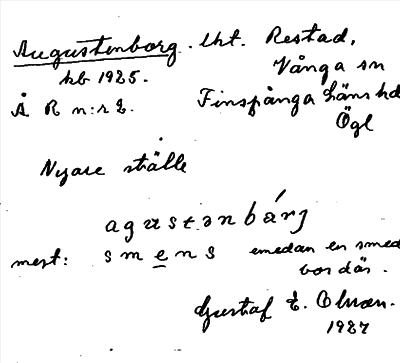 Augustenborg. lht. Restad,
hb 1925. Vånga sn
Å R n:r 2. Finspånga läns hd
Ögl
Nyare ställe
agustənbárj
mest: smens emedan en smed
bor där.
Gustaf E. Olsson.
1927